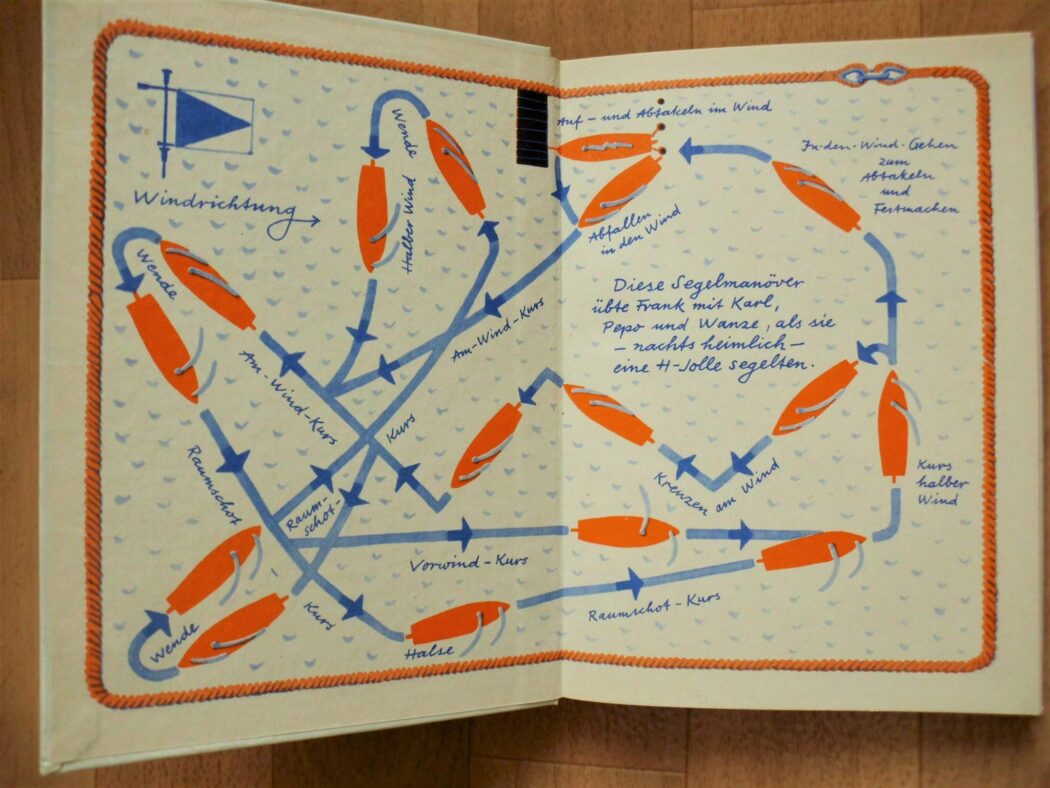 Windrichtung
Wende
Halber Wind
Wende
Am-Wind-Kurs
Am-Wind-Kurs
Kurs
Raumschot
Raum-
schot-
Kurs
Vorwind-Kurs
Wende
Halse
Auf- und Abtakeln im Wind
Abfallen
in den Wind
In-den-Wind-Gehen
zum
Abtakeln
und
Festmachen
Diese Segelmanöver
übte Frank mit Karl,
Pepo und Wanze, als sie
– nachts heimlich –
eine H-Jolle segelten.
Kreuzen am Wind
Kurs
halber
Wind
Raumschot-Kurs